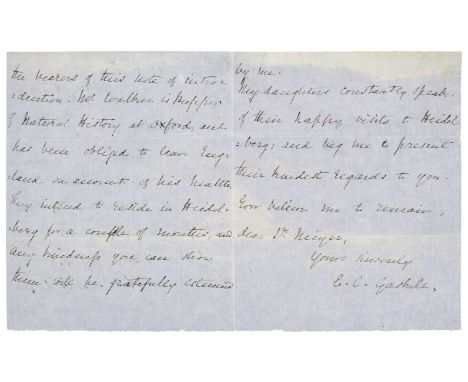 the bearers of this note of intro=
=duction. Mr. Walker is Professor
of Natural History at Oxford, and
has been obliged to leave Eng=
=land on account of his health.
They intend to reside in Heidel=
=berg for a couple of months, and
any kindness you can show
them will be gratefully esteemed
by me.
My daughters constantly speak
of their happy visits to Heidel
=berg; and beg me to present
their kindest regards to you.
believe me to remain,
dear Dr.
Yours sincerely
E. C. Gaskell.